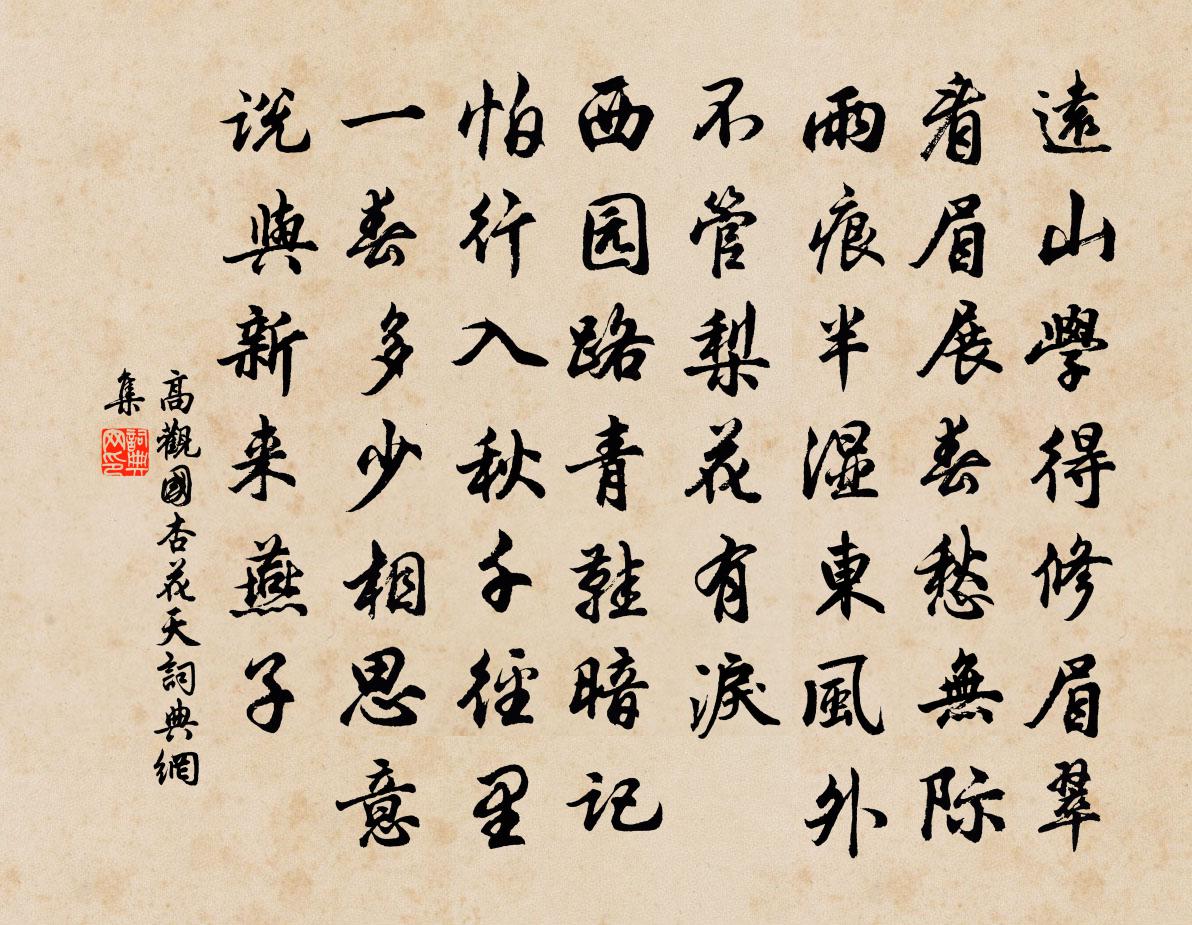 遠山學得修眉翠
看眉展春愁無际
雨痕半湿東風外
不管梨花有淚
西园路青鞋暗記
怕行入秋千徑里
一春多少相思意
说與新来燕子
高觀國杏花天詞典網
集
詞典网印